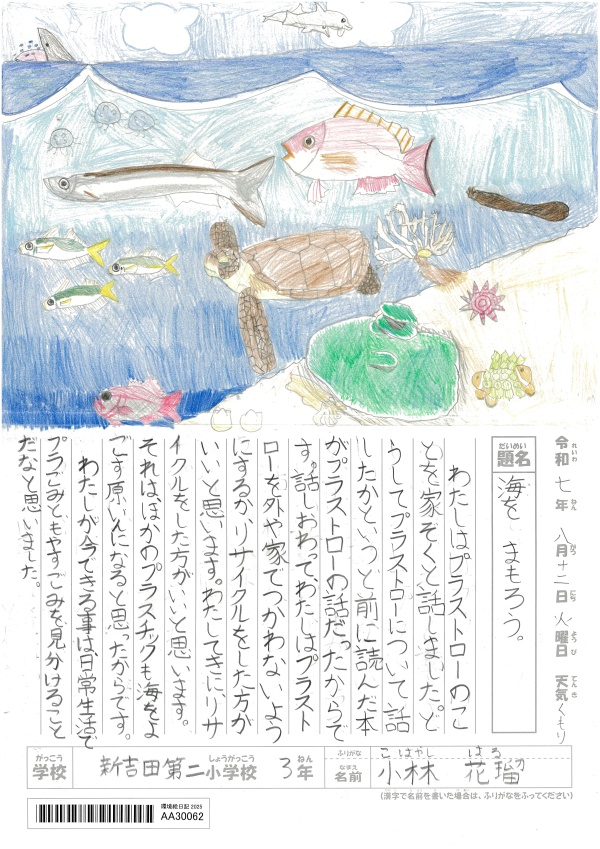 令和七年八月十二日火曜日天気くもり
れいわ ねん がつ にち ようび てんき
だいめい
題名 海をまもろう。
わたしはプラストローのこ
とを家ぞくと話しました。ど
うしてプラストローについて話
したかというと前に読んだ本
がプラストローの話だったからで
す。話しおわって、わたしはプラスト
ローを外や家でつかわないよう
にするか、リサイクルをした方が
いいと思います。わたしてきにリサ
イクルをした方がいいと思います。
それは、ほかのプラスチックも海をよ
ごす原いんになると思ったからです。
わたしが今できる事は、日常生活で
プラごみともやすごみを見分けること
だなと思いました。
がっこう しょうがっこう ねん ふりがな こばやし はる
学校 新吉田第二小学校 3年 なまえ 名前 小林 花瑠
(漢字で名前を書いた場合は、ふりがなをふってください)
環境絵日記 2025
AA30062